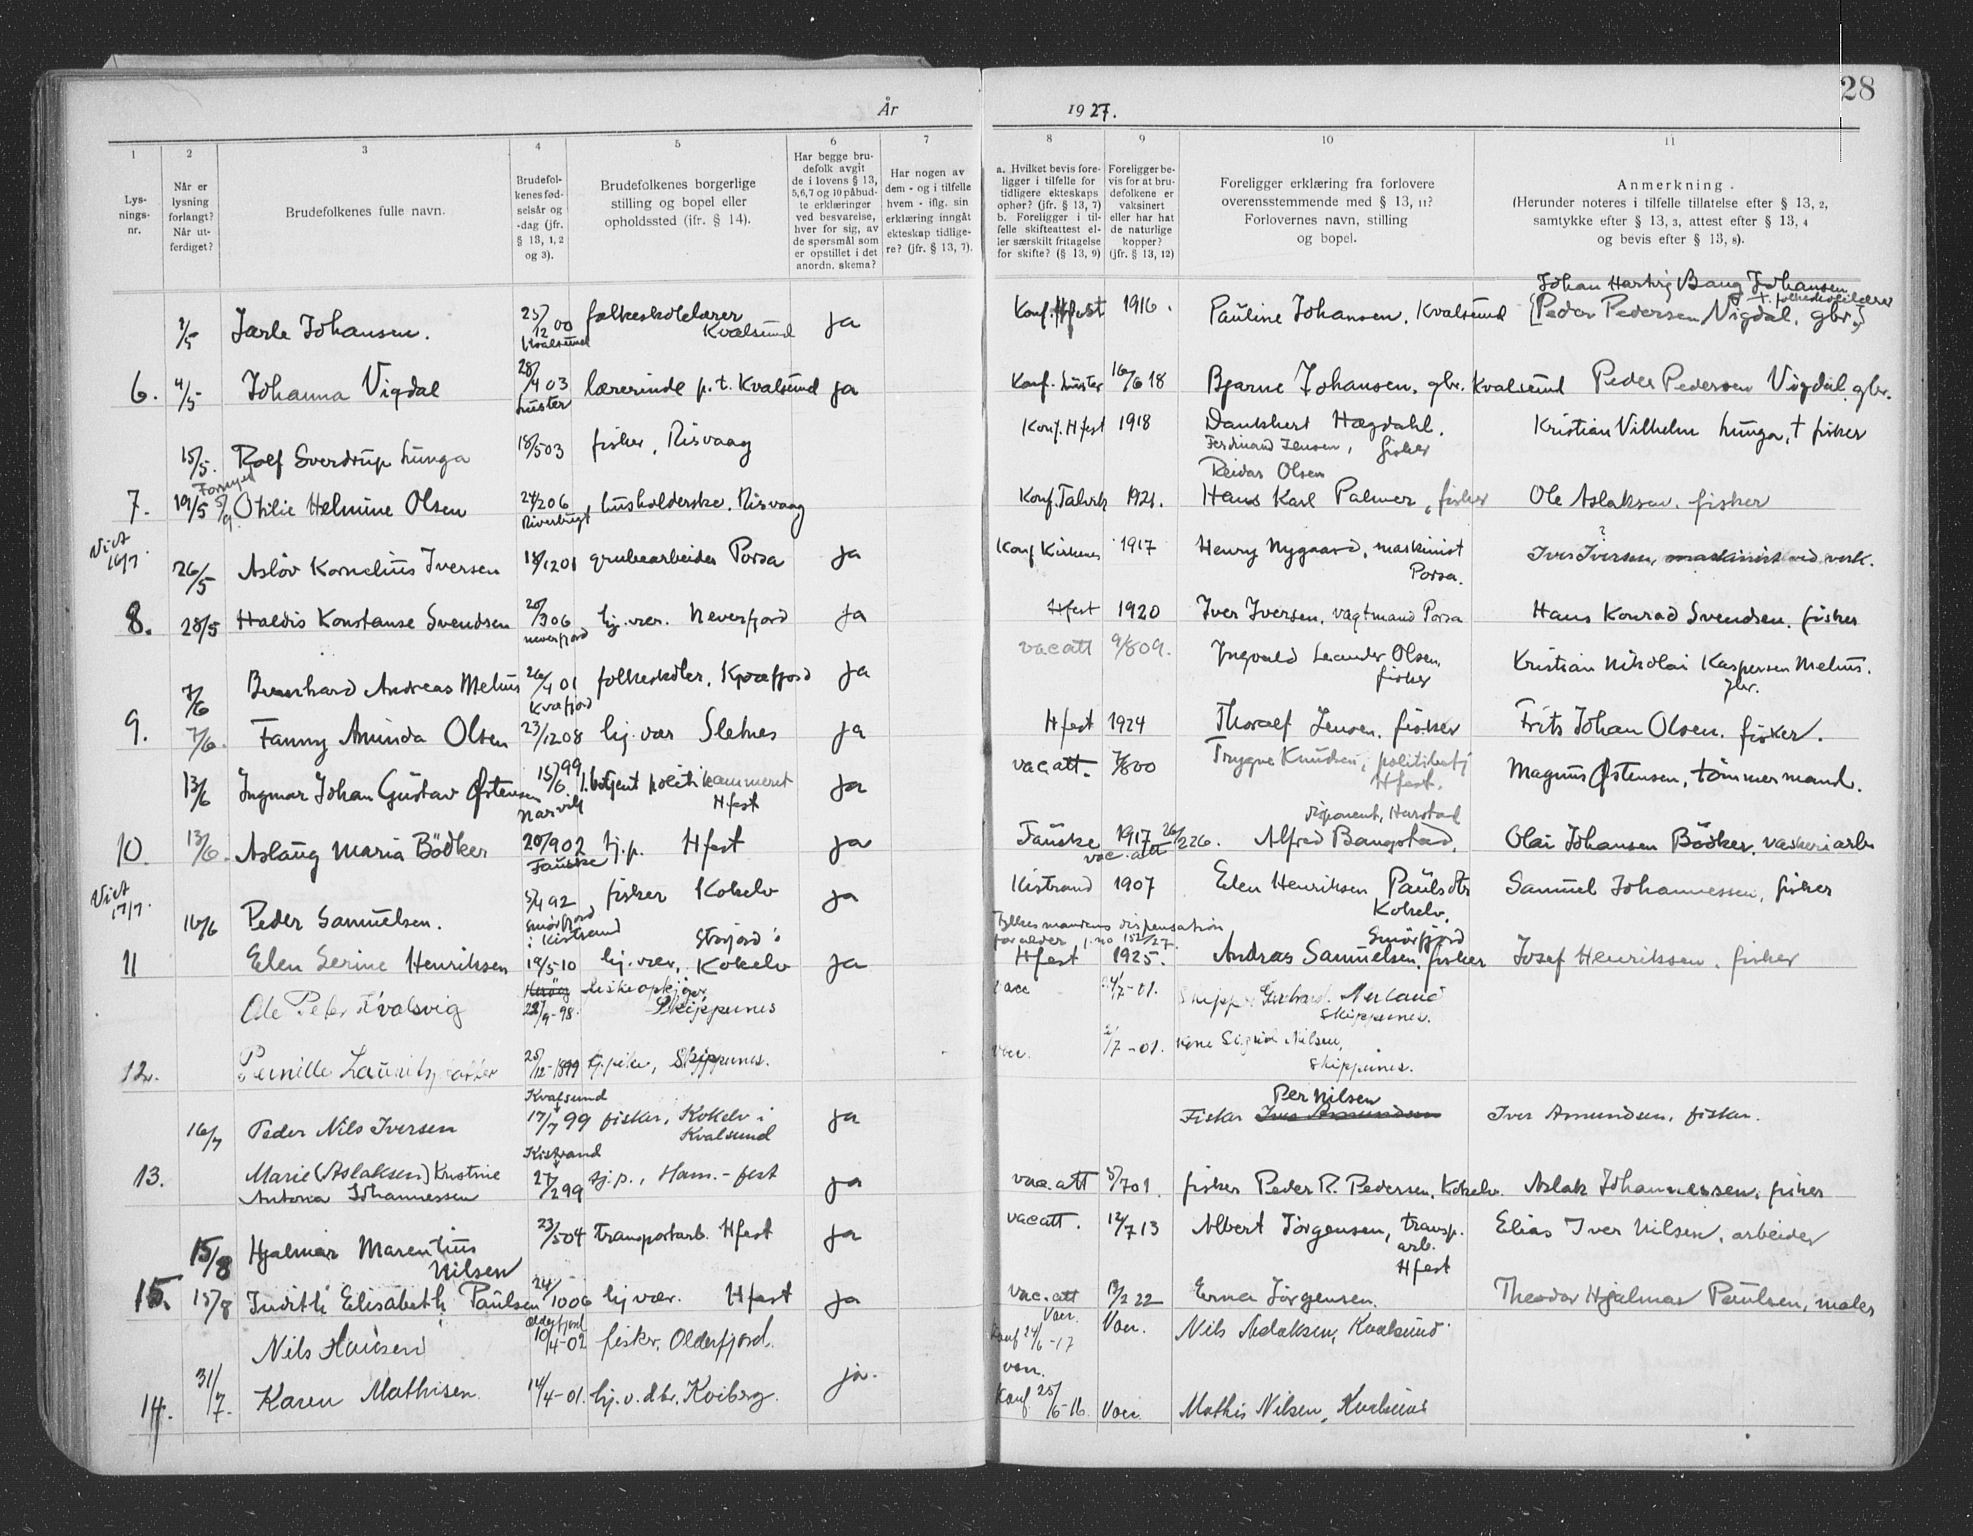 28
År 1927.
1 2 3 4 5 6 7 8 9 10 11
Lys-
nings-
nr.
Når er
lysning
forlangt?
Når ut-
ferdiget?
Brudefolkenes fulle navn.
Brudefol-
kenes fød-
selsår og
-dag (jfr.
§ 13, 1, 2
og 3).
Brudefolkenes borgerlige
stilling og bopel eller
opholdssted (ifr. § 14).
Har begge bru-
defolk avgit
de i lovens § 13,
5,6,7 og 10 påbud-
te erklæringer
ved besvarelse,
hver for sig, av
de spørsmål som
er opstillet i det
anordn. skema?
Har nogen av
dem - og i tilfelle
hvem - iflg. sin
erklæring inngått
ekteskap tidlige-
re? (jfr. § 13, 7).
a. Hvilket bevis fore-
ligger i tilfelle for
tidligere ekteskaps
ophør? (jfr. § 13, 7)
b. Foreligger i til-
felle skifteattest el-
ler særskilt fritagelse
for skifte? (§ 13, 9)
Foreligger be-
vis for at bru-
defolkene er
vaksinert
eller har hat
de naturlige
kopper?
(jfr. § 13, 12)
Foreligger erklæring fra forlovere
overensstemmende med § 13, 11?
Forlovernes navn, stilling
og bopel.
Anmerkning.
(Herunder noteres i tilfelle tillatelse efter § 13, 2,
samtykke efter § 13, 3, attest efter § 13, 4
og bevis efter § 13, 8).
Johan Hartvig Bang Johansen
2/5 Jarle Johansen. 25/12 00 folkeskolelærer ja Konf. Hfest 1916. Pauline Johansen, Kvalsund [Peder Pedersen Vigdal, gbr.]
Kvalsund Kvalsund
6. 4/5 Johanna Vigdal 28/4 03 lærerinde p.t. Kvalsund ja Konf. Luster 16/6 18 Bjarne Johansen, gbr. Kvalsund Peder Pedersen Vigdal, gbr.
Luster
15/5. Rolf Sverdrup Lunga 18/5 03 fisker, Risvaag Konf. Hfest 1918 Dankbert Hagdahl. Kristian Vilhelm Lunga, † fisker
Ferdinand Jensen, fisker
Reidar Olsen
Fornyet
7. 19/5 5/9 Otilie Helmine Olsen 24/2 06 husholderske, Risvaag Konf. Talvik 1921. Hans Karl Palmer, fisker Ole Aslaksen, fisker
Riverbugt
Viet
16/7. 26/5 Asløv Kornelius Iversen 18/12 01 grubearbeider Porsa ja Konf Kirkenes 1917 Henry Nygaard, maskinist Iver Iversen, maskinist ved verk.
Porsa.
8. 28/5 Haldis Konstanse Svendsen 20/3 06 hj. vær. Neverfjord ja Hfest 1920 Iver Iversen, vagtmand Porsa Hans Konrad Svendsen, fisker
neverfjord
7/6 Bernhard Andreas Melius 26/4 01 folkeskolelr. Kvæfjord ja vac att 9/8 09. Ingvald Leander Olsen, Kristian Nikolai Kaspersen Melius.
Kvæfjord fisker gbr.
9. 7/6. Fanny Aminda Olsen 23/12 08 hj. vær Sletnes ja Hfest 1924 Thoralf Jensen, fisker Frits Johan Olsen, fisker.
13/6 Ingmar Johan Gustav Østensen 15/6 99 1. betjent politikammeret ja vac att. 7/8 00 Trygve Knudsen, politibetj Magnus Østensen, tømmermand.
Narvik Hfest Hfest.
disponent, Harstad
10. 13/6. Aslaug Maria Bödker 20/9 02 hj. p. Hfest ja Fauske 1917 26/2 26. Alfred Bangstad, Olai Johansen Bödker, vaskeriarb
Fauske vac. att
Viet
17/7. 16/6 Peder Samuelsen. 5/4 92 fisker Kokelv ja Kistrand 1907 Elen Henriksen Paulsdtr Samuel Johannessen, fisker
Smörfjord Kokelv,
i Kistrand
Fylkesmandens dispensation
for alder j. no 152/27.
Smörfjord
11 Elen Serine Henriksen 18/5-10 hj. vær, Storjord i ja Hfest 1925. Andreas Samuelsen, fisker Josef Henriksen, fisker
Kokelv
Ole Peter Kvalsvig fiskeopkjøper 1/7-01. Nerland
28/9-98. Skippernes Skippernes.
12. Pernille 25/12-1899 hj. pike, Skippernes. /7-01. Sigrid Nilsen,
Skippernes.
Kvalsund Per Nilsen
16/7 Peder Nils Iversen 17/7 99 fisker, Kokelv i ja Fisker Iver Amundsen Iver Amundsen, fisker.
Kvalsund
Kistrand
13. Marie (Aslaksen) Kristine 27/2 99 hj. p., Ham.-fest ja vac. att 5/7 01. fisker Peder R. Pedersen, Kokelv. Aslak Johannessen, fisker
Antona Johannessen
15/8 Hjalmar Marentius 23/5 04 transportarb. Hfest ja vac att. 12/7 13 Albert Jörgensen, transp. Elias Iver Nilsen, arbeider
Nilsen arb.
Hfest
15. 15/8 Judith Elisabeth Paulsen 24/10 06 hj vær. Hfest ja vac. att 13/2 22 Erna Jörgensen. Theodor Hjalmar Paulsen, maler
Olderfjord Vac.
Nils Hansen 10/4-02 fisker, Olderfjord. Konf 24/6-17 Vac. Nils Aslaksen, Kvalsund
vac.
14. 31/7. Karen Mathisen 14/4-01. hj. v. dtr. Kviberg. ja. Konf 25/6-16 Vac. Mathis Nilsen, Kvalsund